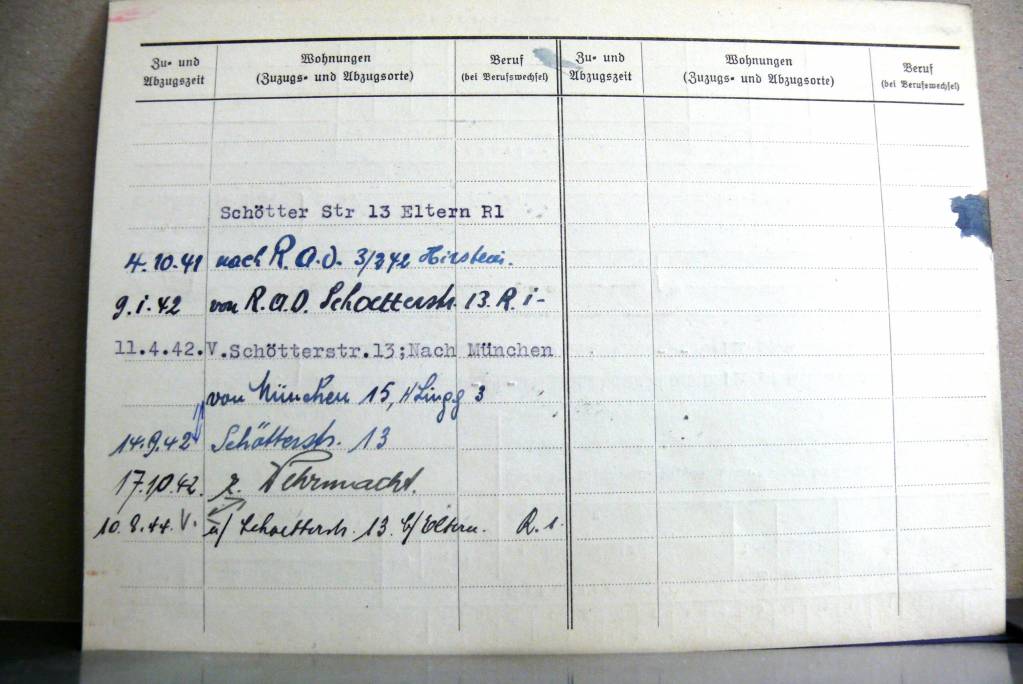 Zu- und Abzugszeit
Wohnungen (Zuzugs- und Abzugsorte)
Beruf (bei Berufswechsel)
Zu- und Abzugszeit
Wohnungen (Zuzugs- und Abzugsorte)
Beruf (bei Berufswechsel)
Schötter Str 13 Eltern R1
4.10.41 nach R.A.D. 3/242 Hirstein.
9.1.42 von R.A.D. Schoetterstr. 13. R. i-
11.4.42. V.Schötterstr.13;Nach München
von München 15, Lingg 3
14.9.42 Schötterstr. 13
17.10.42. z. Wehrmacht.
10.8.44. V. a/ Schoetterstr. 13. b/ Eltern. R. 1.